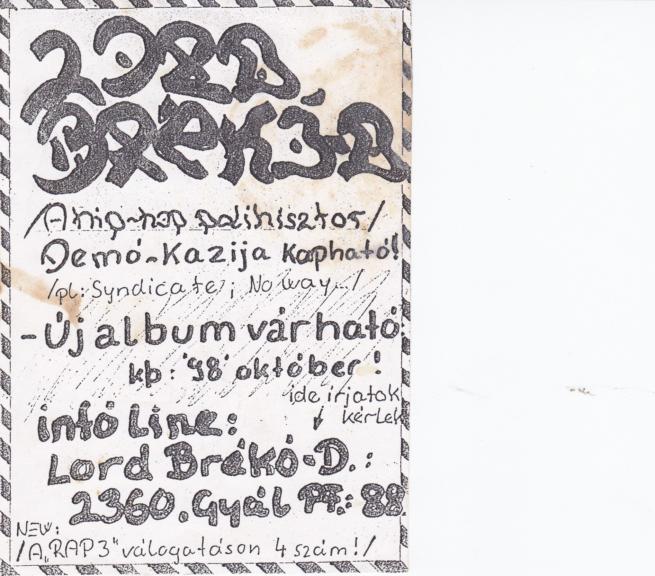 LORD
BRÉKÓ-D
/A hip-hop polihisztor/
Demó-Kazija Kapható!
/pl: Syndicate, No way../
-Új album várható:
kb: '98' október!
ide írjatok
kérlek
infó line:
Lord Brékó-D.:
2360. Gyál PF.: 88.
NEW:
/A „RAP 3" válogatáson 4 szám!/